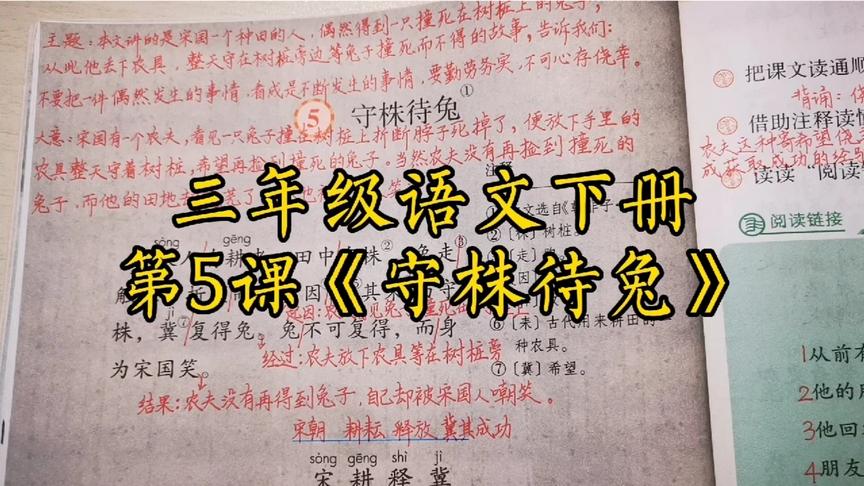 主题:本文讲的是宋国一个种田的人,偶然得到一只撞死在树桩上的兔子,
从此他丢下农具,整天守在树桩旁边等兔子撞死而不得的故事,告诉我们:
不要把一件偶然发生的事情,看成是不断发生的事情,要勤劳务实,不可心存侥幸。
⑤ 守株待兔①
大意:宋国有个农夫,看见一只兔子撞在树桩上折断脖子死掉了,便放下手里的
农具整天守着树桩,希望再捡到撞死的兔子。当然农夫没有再捡到撞死的
兔子,而他的田地
三年级语文下册
第5课《守株待兔》
sòng gēng
人耕 田中 株② 走③
因 其
株,冀⑦复得兔。兔不可复得,而身
为宋国笑。
经过:农夫放下农具等在树桩旁
结果:农夫没有再得到兔子,自己却被宋国人嘲笑。
宋朝 耕耘 释放 冀其成功
sòng gēng shì jì
宋 耕 释 冀
⑥〔耒〕古代用来耕田的一
种农具。
⑦〔冀〕希望。
把课文读通顺
背诵:
借助注释读
读读“阅读
阅读链接
1从前有
2他的
3他回
4朋友